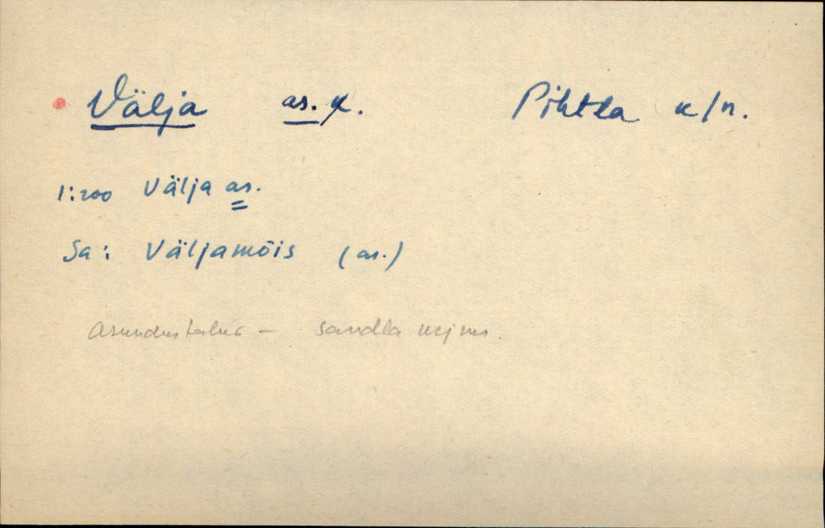 Välja as. k. Pihtla k/n.
1:200 Välja as.
Sa: Väljamõis (as.)
Asundustalud – Sandla